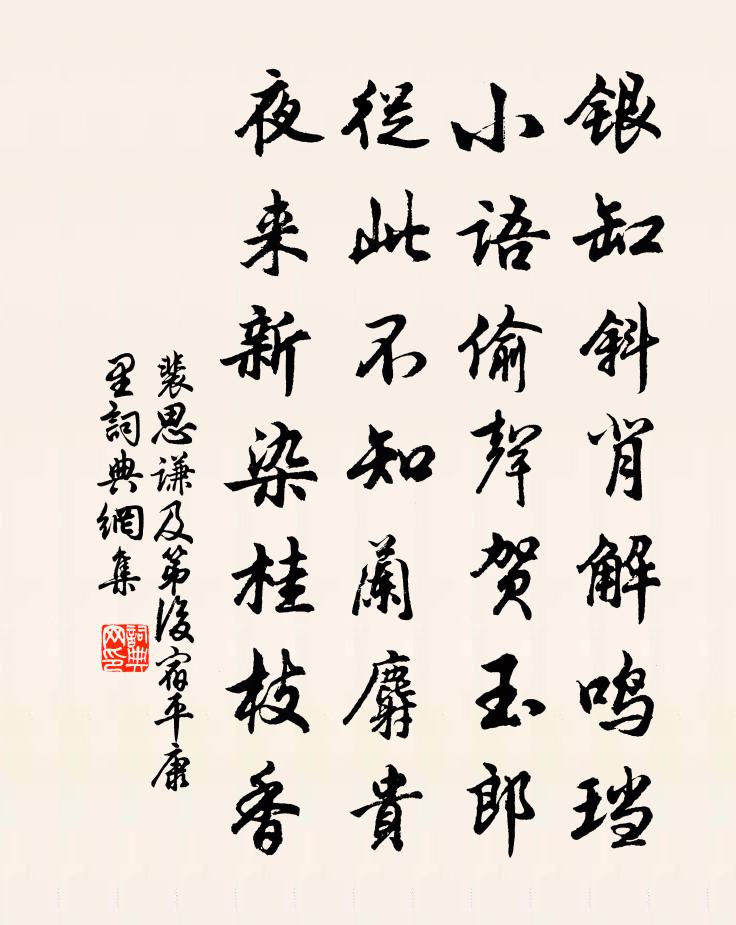 银缸斜背解鸣珰
小语偷聲贺玉郎
從此不知蘭麝貴
夜来新染桂枝香
裴思谦及第後宿平康
里詞典網集
詞典
网印